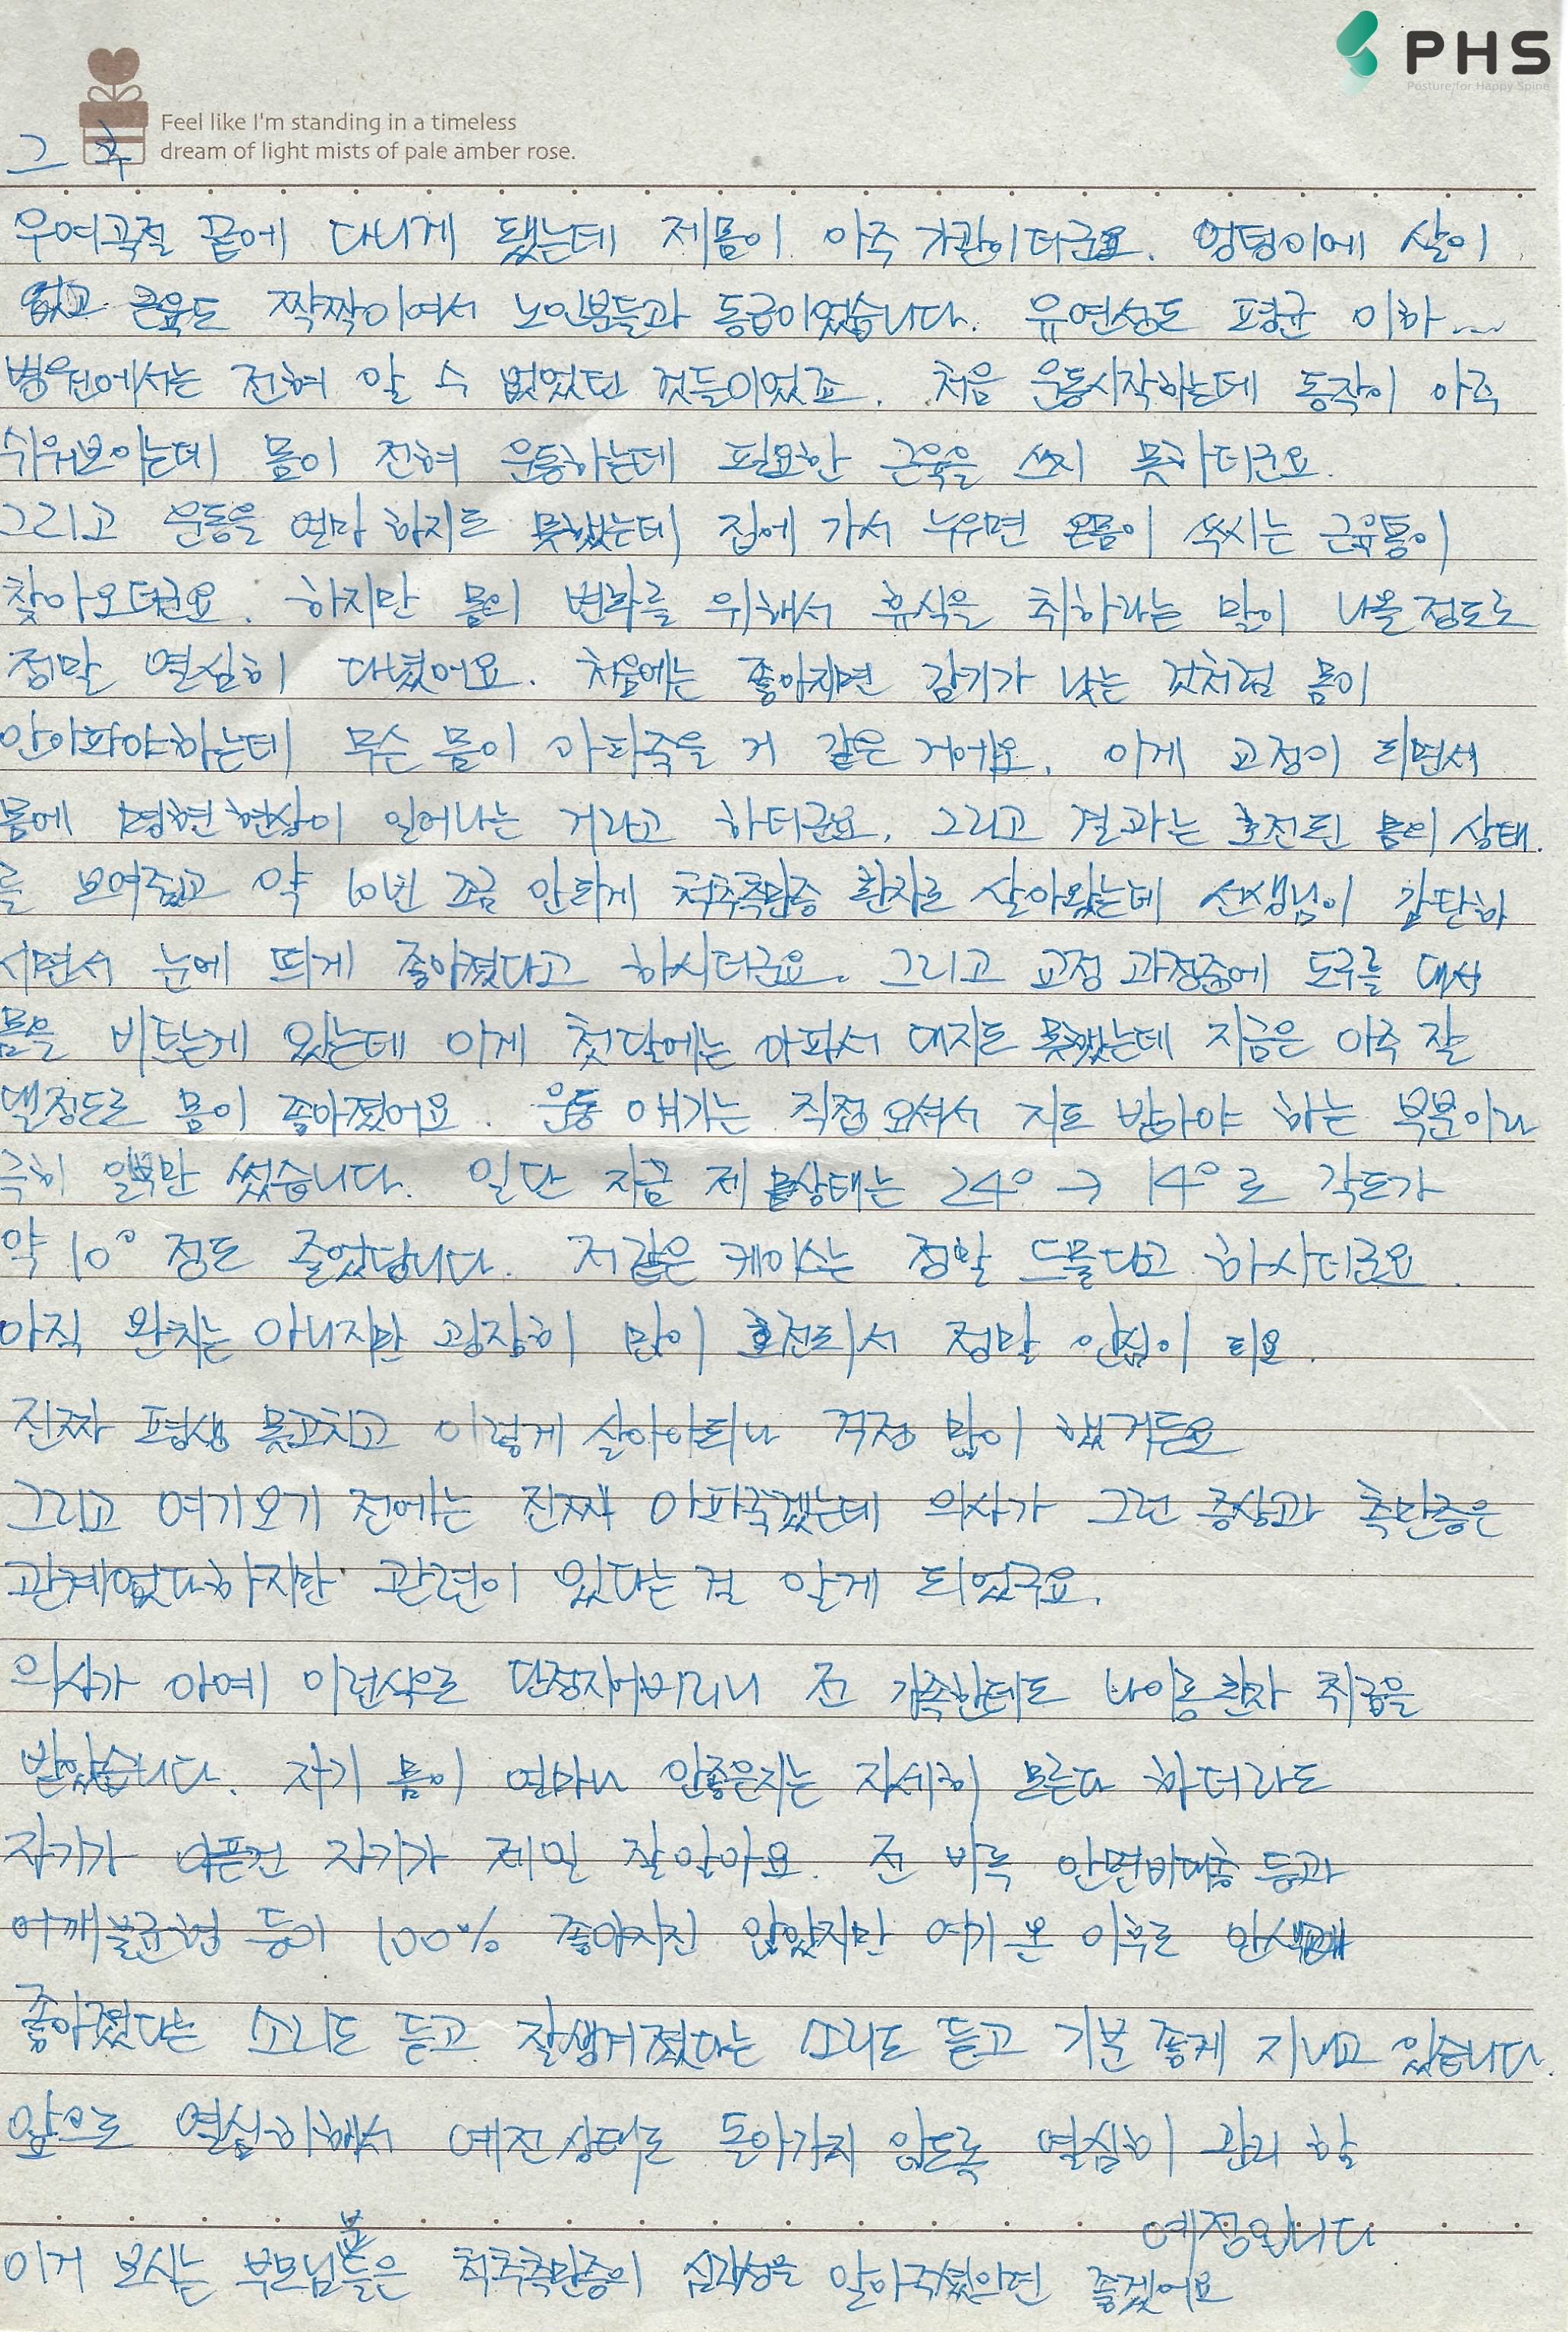 PHS
Posture for Happy Spine
Feel like I'm standing in a timeless
dream of light mists of pale amber rose.
그 후
우여곡절 끝에 다니게 됐는데 제몸이 아주 가관이더군요. 엉덩이에 살이
없고 근육도 짝짝이여서 노인분들과 동급이였습니다. 유연성도 평균 이하...
병원에서는 전혀 알 수 없었던 것들이었죠. 처음 운동시작하는데 동작이 아주
쉬워보이는데 몸이 전혀 운동하는데 필요한 근육을 쓰지 못하더군요.
그리고 운동을 얼마 하지도 못했는데 집에 가서 누우면 온몸이 쑥씨는 근육통이
찾아오더군요. 하지만 몸의 변화를 위해서 휴식을 취하라는 말이 나올정도로
정말 열심히 다녔어요. 처음에는 좋아지면 감기가 낫는 것처럼 몸이
안아파야하는데 무슨 몸이 아파죽을 거 같은 거에요. 이게 교정이 되면서
몸에 명현현상이 일어나는 거라고 하더군요. 그리고 결과는 호전된 몸의 상태.
를 보여줬고 약 10년 조금 안되게 척추측만증 환자로 살아왔는데 선생님이 감탄하
시면서 눈에 띄게 좋아졌다고 하시더군요. 그리고 교정 과정중에 도구를 대서
몸을 비트는게 있는데 이게 첫달에는 아파서 대지도 못했는데 지금은 아주 잘
댈정도로 몸이 좋아졌어요. 운동 얘기는 직접 오셔서 지도 받아야 하는 부분이라
극히 일부만 썼습니다. 일단 지금 제 몸상태는 24° → 14°로 각도가
약 10° 정도 줄었답니다. 저같은 케이스는 정말 드물다고 하시더군요.
아직 완치는 아니지만 굉장히 많이 호전되서 정말 안심이 되요.
진짜 평생 못고치고 이렇게 살아야되나 걱정 많이 했거든요
그리고 여기오기 전에는 진짜 아파죽겠는데 의사가 그런 증상과 측만증은
관계없다하지만 관련이 있다는 걸 알게 되었구요.
의사가 아예 이런식으로 단정지어버리니 전 가족한테도 나이롱환자 취급을
받았습니다. 자기 몸이 얼마나 안좋은지는 자세히 모른다 하더라도
자기가 아픈건 자기가 제일 잘알아요. 전 비록 안면비대칭 등과
어깨불균형 등이 100% 좋아지진 않았지만 여기 온 이후로 안색
좋아졌다는 소리도 듣고 잘생겨졌다는 소리도 듣고 기분 좋게 지내고 있습니다.
앞으로 열심히해서 예전상태로 돌아가지 않도록 열심히 관리 할
예정입니다
이거 보시는 부모님분들은 척추측만증의 심각성을 알아주셨으면 좋겠어요